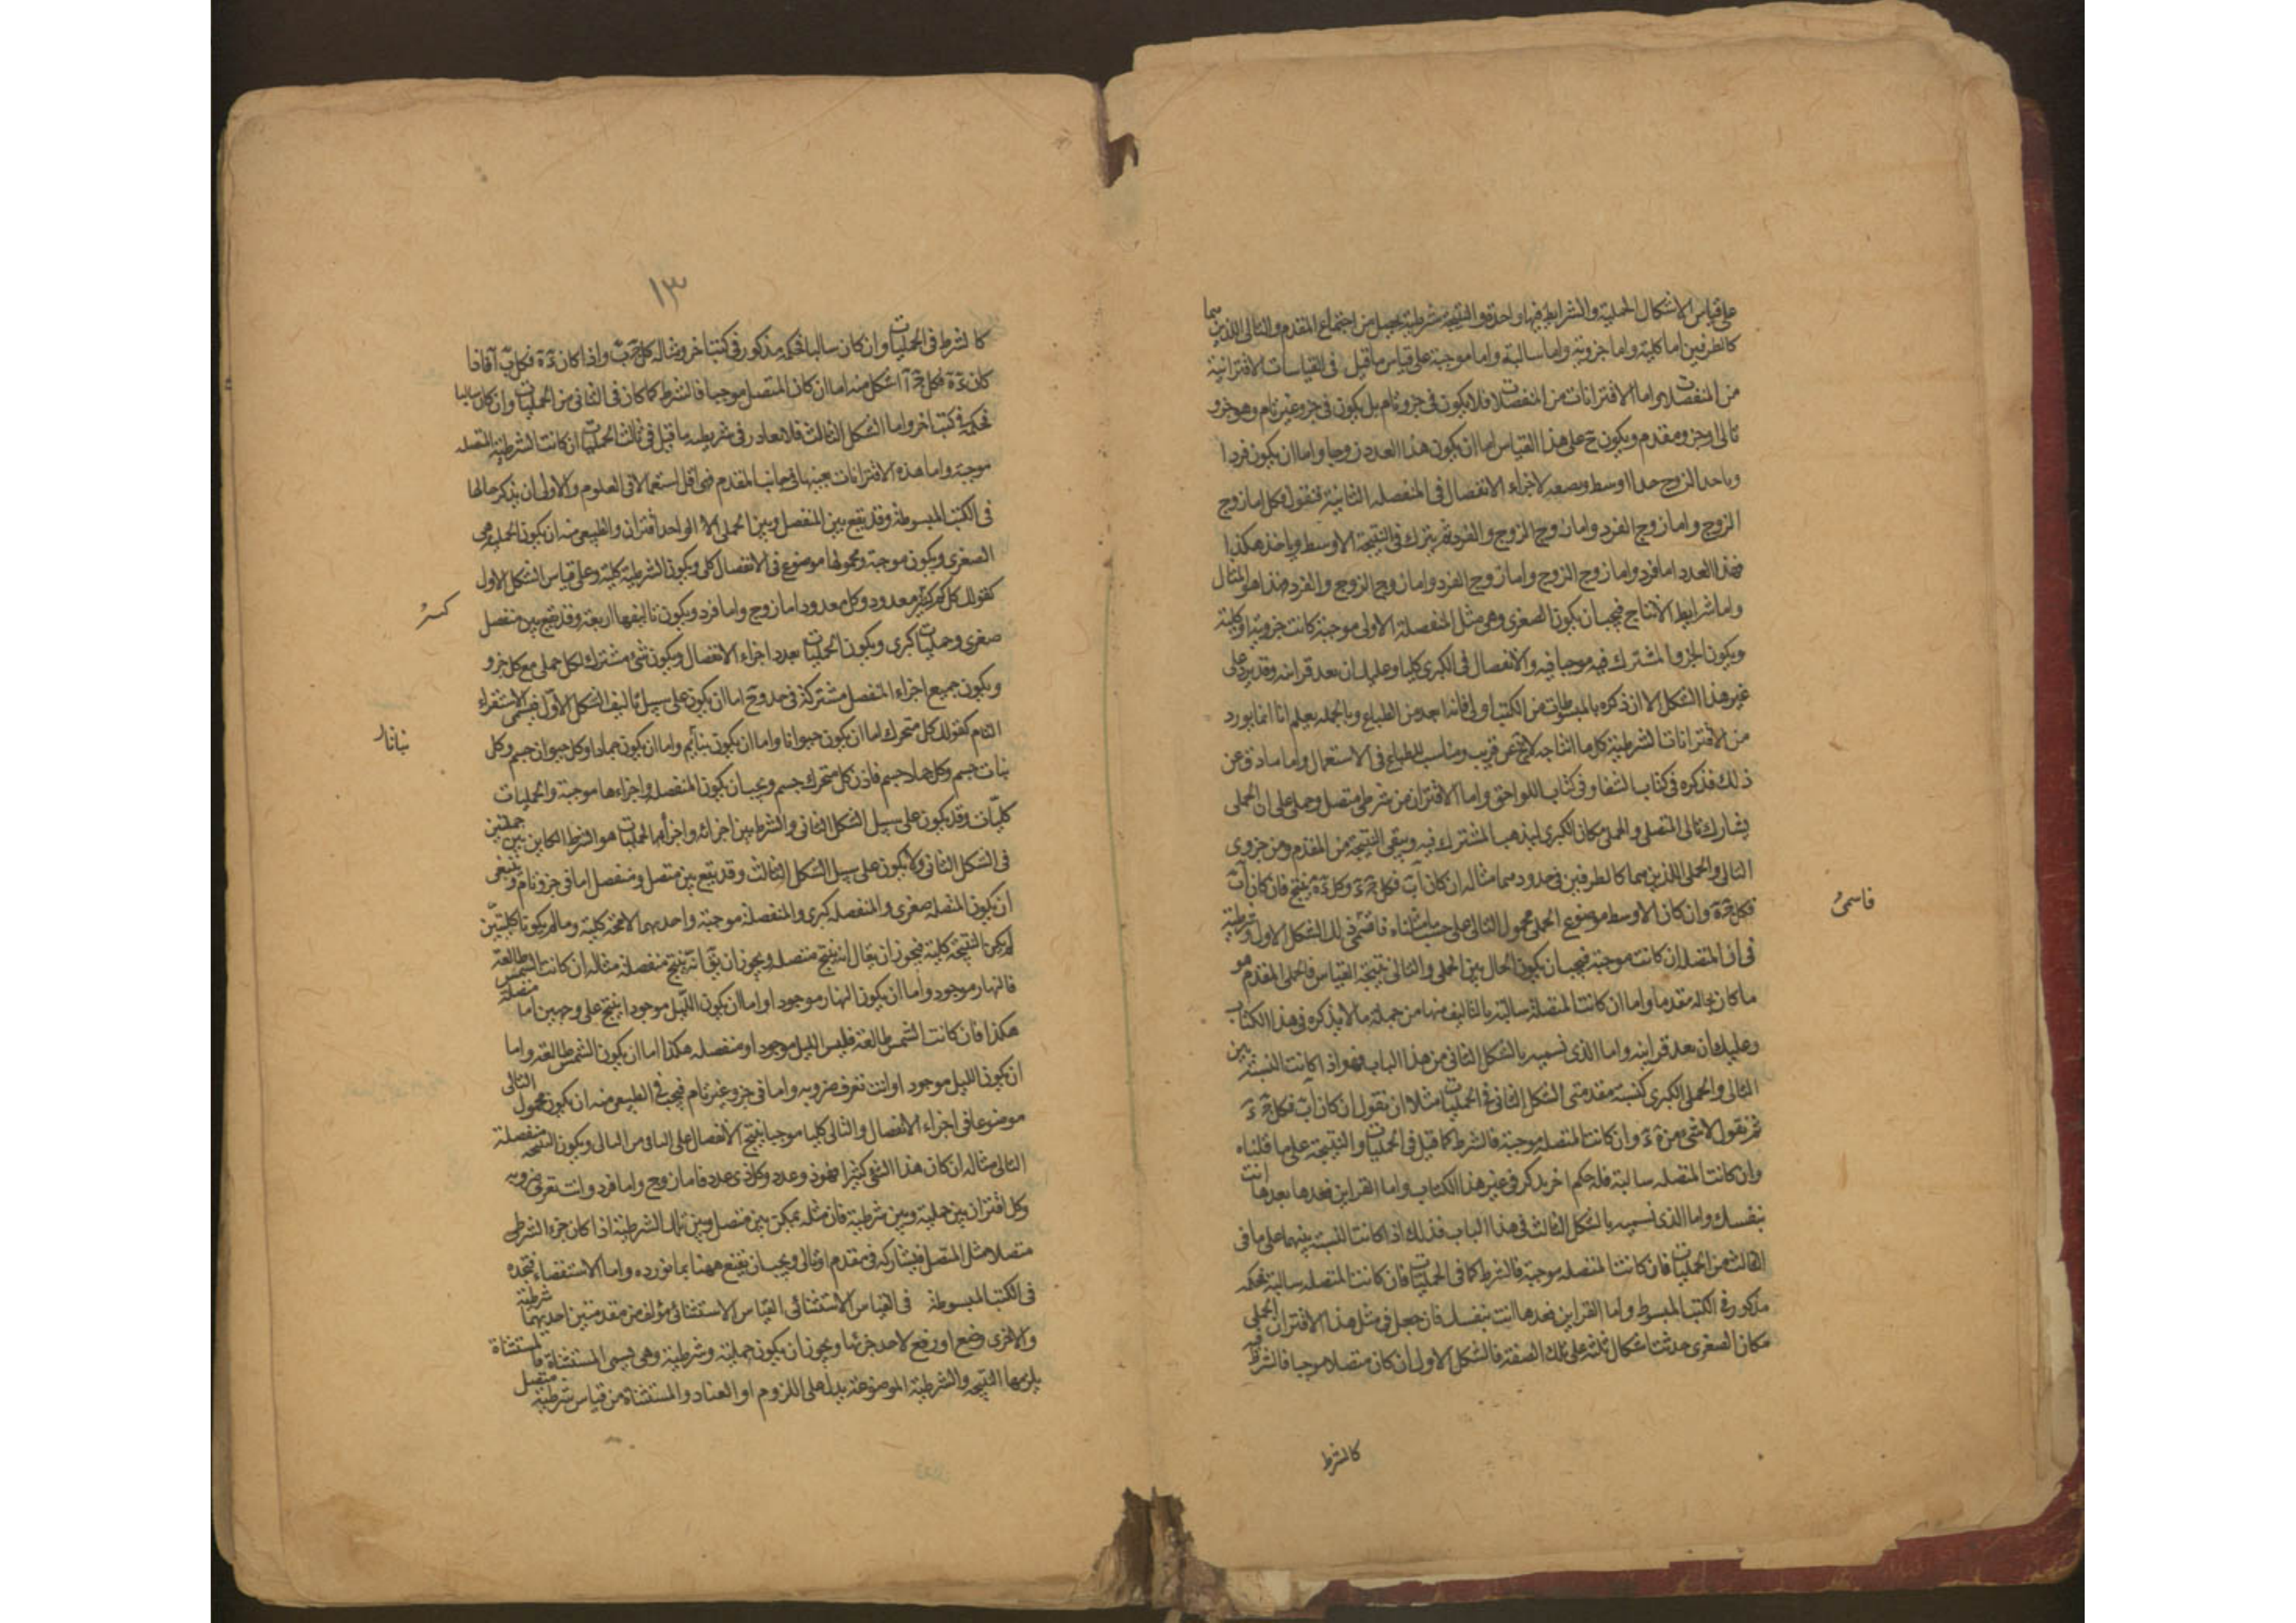 على قياس الاشكال الحملية والشرايط فيها واحدة والنتيجة شرطية تحصل من اجتماع المقدم والتالى اللذين هما
كالطرفين اما كلية واما جزوية واما سالبة واما موجبة على قياس ما قيل فى القياسات الاقترانية
من المتصلات واما الاقترانات من المنفصلات فلا يكون فى جزو تام بل يكون فى جزو غير تام وهو جزو
تالى او جزو مقدم ويكون ح على هذا القياس اما ان يكون هذا العدد زوجا واما ان يكون فردا
وياخذ الزوج حدا اوسط ويصفه لاجزاء الانفصال فى المنفصله الثانية فنقول فكل اما زوج
الزوج واما زوج الفرد واما زوج الزوج والفرد ثم يترك فى النتيجة الاوسط وياخذ هكذا
فهذا العدد اما فرد واما زوج الزوج واما زوج الفرد واما زوج الزوج والفرد فهذا هو المثال
واما شرايط الانتاج فيجب ان يكون الصغرى وهى مثل المنفصلة الاولى موجبة كانت جزوية او كلية
ويكون الجزو المشترك فيه موجبا فيه والانفصال فى الكبرى كليا وعليك ان تعد قراينه وقد يرد على
غير هذا الشكل الا ان ذكره بالمبسوطات من الكتب اولى فانه ابعد من الطباع وبالجمله يعلم انا انما نورد
من الاقترانات الشرطية كل ما انتاجه لايح عن قريب ومناسب للطباع فى الاستعمال واما ما دق عن
ذلك فذكره فى كتاب الشفا وفى كتاب اللواحق واما الاقتران من شرطى متصل وحملى على ان الحملى
يشارك تالى المتصل والحملى مكان الكبرى ليذهب المشترك فيه ويبقى النتيجة من المقدم ومن جزوى
التالى والحملى اللذين هما كالطرفين فى حدود مما مثاله ان كان آب فكل جد وكل ده ينتج فان كان آب
فكل جه وان كان الاوسط موضوع الحملى محمول التالى على حسب ما مثلناه فاقسمى ذلك الشكل الاول وشرطية
فى ان المتصل ان كانت موجبة فيجب ان يكون الحال بين الحملى والتالى نتيجة القياس فالحملى المقدم هو
ما كان بحاله مقدما واما ان كانت المتصلة سالبة بالتاليف منها من جملة ما لا يذكره فى هذا الكتاب
وعليك ان تعد قراينه واما الذى نسميه بالشكل الثانى من هذا الباب فهو اذا كانت النسبة بين
التالى والحملى الكبرى كنسبة مقدمتى الشكل الثانى فى الحمليات مثلا ان نقول ان كان آب فكل جد
ثم نقول لا شى من ه د وان كانت المتصله موجبة فالشرط كما قيل فى الحمليات والنتيجة على ما قلناه
وان كانت المتصله سالبة فله حكم اخر يذكر فى غير هذا الكتاب واما القراين فعدها بعدها انت
بنفسك واما الذى نسميه بالشكل الثالث فى هذا الباب فذلك اذا كانت النسبة بينهما على ما فى
الثالث من الحمليات فان كانت المتصله موجبة فالشرط كما فى الحمليات فان كانت المتصله سالبة فحكمه
مذكور فى الكتب المبسوط واما القراين فعدها انت بنفسك فان جعل فى مثل هذا الاقتران الحملى
مكان الصغرى حدثت اشكال ثلثة على تلك الصفة فالشكل الاول ان كان متصلا موجبا فالشرط فيه
كالشرط
قاسمى
١٣
كالشرط فى الحمليات وان كان سالبا فحكمه مذكور فى كتب اخر ومثاله كل جب واذا كان ده فكل ب آ فاذا
كان ده فكل ج آ الشكل منه اما ان كان المتصل موجبا فالشرط كما كان فى الثانى من الحمليات وان كان سالبا
فحكمه فى كتب اخر واما الشكل الثالث فلا يغادر فى شريطه ما قيل فى ثالث الحمليات ان كانت الشرطية المتصله
موجبة واما هذه الاقترانات بعينها فى جانب المقدم فهى اقل استعمالا فى العلوم والاولى ان يذكر حالها
فى الكتب المبسوطة وقد يقع بين المنفصل وبين الحملى الا الواحد اقتران والطبيعى منه ان يكون الحملية هى
الصغرى ويكون موجبة ومحمولها موضوع فى الانفصال كلى ويكون الشرطية كلية وعلى قياس الشكل الاول
كقولك كل كثير معدود وكل معدود اما زوج واما فرد ويكون تاليفها اربعة وقد يقع بين منفصل
صغرى وحمليات كبرى ويكون الحمليات بعدد اجزاء الانفصال ويكون شى مشترك لكل حملى مع كل جزو
ويكون جميع اجزاء المنفصل مشتركة فى حد وح اما ان يكون على سبيل تاليف الشكل الاول فيسمى الاستقراء
التام كقولك كل متحرك اما ان يكون حيوانا واما ان يكون بنأيم واما ان يكون جمادا وكل حيوان جسم وكل
نبات جسم وكل جماد جسم فاذن كل متحرك جسم ويجب ان يكون المنفصله واجزاءها موجبة والحمليات
كليات وقد يكون على سبيل الشكل الثانى والشرط بين اجزائه واجزاء الحمليات هو الشرط الكاين بين حمليتين
فى الشكل الثانى ولا يكون على سبيل الشكل الثالث وقد يقع بين متصل ومنفصل اما فى جزو تام وينبغى
ان يكون المتصله صغرى والمنفصله كبرى والمنفصلة موجبة واحديهما لا محة كلية وما لم يكونا كليتين
لم يكن النتيجة كلية فيجوز ان يقال انه ينتج متصله ويجوز ان يق انه ينتج منفصلة مثاله ان كانت الشمس طالعة
فالنهار موجود واما ان يكون النهار موجود او اما ان يكون الليل موجودا ينتج على وجهين اما متصلة
هكذا فان كانت الشمس طالعة فليس الليل موجودا ومنفصله هكذا اما ان يكون الشمس طالعة واما
ان يكون الليل موجود او انت تعرف ضروبه واما فى جزو غير تام فيجب فى الطبيعى منه ان يكون محمول التالى
موضوعا فى اجزاء الانفصال والتالى كليا موجبا ينتج الانفصال على الباقى من التالى ويكون النتيجة منفصلة
التالى مثاله ان كان هذا الشى كثيرا فهو ذو عدد وكل ذى عدد فاما زوج واما فرد وانت تعرف ضروبه
وكل اقتران بين حملية وبين شرطية فان مثله يمكن بين متصل وبين تلك الشرطية اذا كان جزء الشرطى
متصلا مثل المتصل فيشاركه فى مقدم او تالى ويجب ان يقنع ههنا بما نورده واما الاستقصاء فتجده
فى الكتب المبسوطة فى القياس الاستثنائى القياس الاستثنائى مؤلف من مقدمتين احديهما شرطية
والاخرى وضع او رفع لاحد جزئها ويجوز ان يكون حملية وشرطية وهى تسمى المستثناة فالمستثناة
يلزمها النتيجة والشرطية الموضوعة يدل على اللزوم او العناد والمستثناة من قياس شرطية متصل
كثير
نباتا